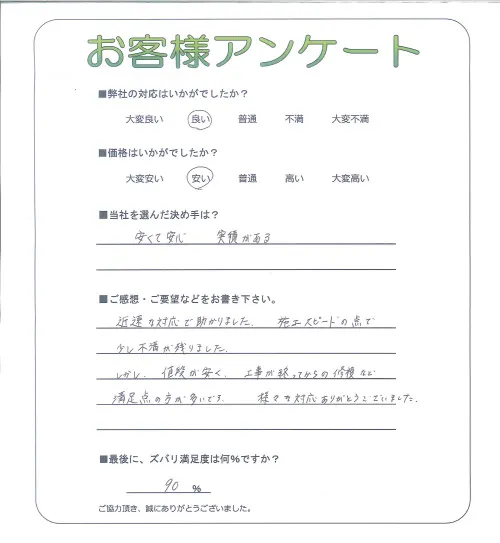 お客様アンケート
■弊社の対応はいかがでしたか？
大変良い 良い 普通 不満 大変不満
■価格はいかがでしたか？
大変安い 安い 普通 高い 大変高い
■当社を選んだ決め手は？
安くて安心 実績がある
■ご感想・ご要望などをお書き下さい。
迅速な対応で助かりました. 施工スピードの点で
少し不満が残りました.
しかし、値段が安く、工事が終ってからの修繕など
満足点の方が多いです. 様々な対応ありがとうございました.
■最後に、ズバリ満足度は何％ですか？
90 ％
ご協力頂き、誠にありがとうございました。